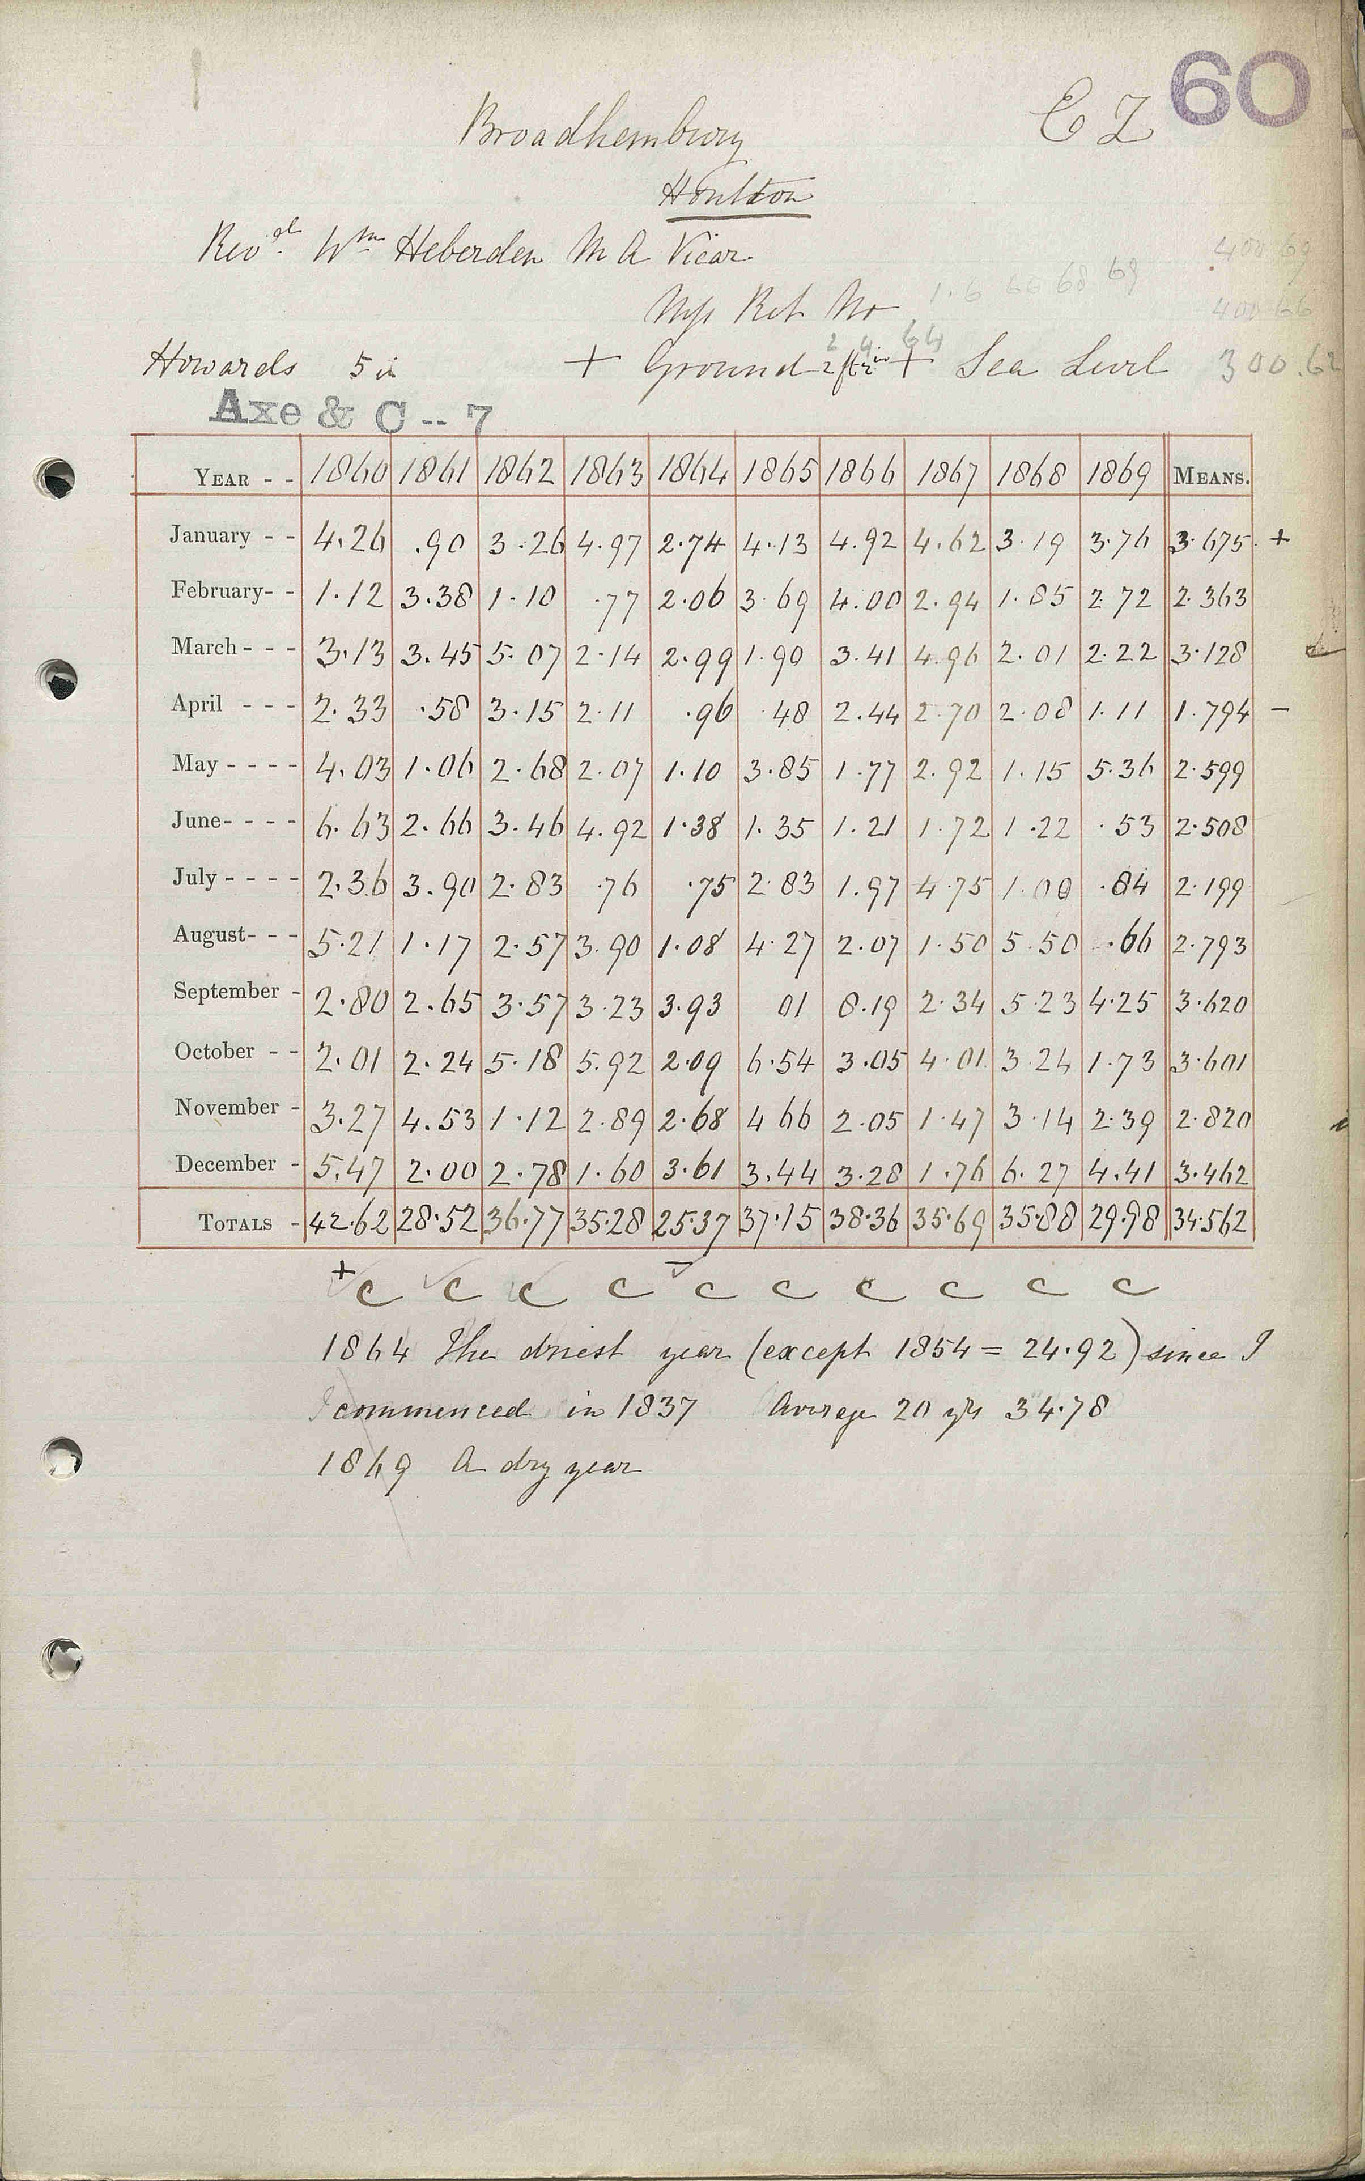 60
C Z
Broadhembury
Honiton
Rev.d Wm Heberden M A Vicar
400 69
Mss Ret No 1.6 66 68 69
400 66
Howards 5 in + Ground 2 ft 2 in + Sea Level 300.62
64
Axe & C -- 7
YEAR - - 1860 1861 1862 1863 1864 1865 1866 1867 1868 1869 MEANS.
January - - 4.26 .90 3.26 4.97 2.74 4.13 4.92 4.62 3.19 3.76 3.675 +
February- - 1.12 3.38 1.10 .77 2.06 3.69 4.00 2.94 1.85 2.72 2.363
March - - - 3.13 3.45 5.07 2.14 2.99 1.90 3.41 4.96 2.01 2.22 3.128
April - - - 2.33 .58 3.15 2.11 .96 .48 2.44 2.70 2.08 1.11 1.794 -
May - - - - 4.03 1.06 2.68 2.07 1.10 3.85 1.77 2.92 1.15 5.36 2.599
June- - - - 6.63 2.66 3.46 4.92 1.38 1.35 1.21 1.72 1.22 .53 2.508
July - - - - 2.36 3.90 2.83 .76 .75 2.83 1.97 4.75 1.00 .84 2.199
August- - - 5.21 1.17 2.57 3.90 1.08 4.27 2.07 1.50 5.50 .66 2.793
September - 2.80 2.65 3.57 3.23 3.93 01 8.19 2.34 5.23 4.25 3.620
October - - 2.01 2.24 5.18 5.92 2.09 6.54 3.05 4.01 3.24 1.73 3.601
November - 3.27 4.53 1.12 2.89 2.68 4 66 2.05 1.47 3.14 2.39 2.820
December - 5.47 2.00 2.78 1.60 3.61 3.44 3.28 1.76 6.27 4.41 3.462
TOTALS - 42.62 28.52 36.77 35.28 25.37 37.15 38.36 35.69 35.88 29.98 34.562
+ c c c c - c c c c c c
1864 The driest year (except 1854 = 24.92) since I
commenced in 1837 Average 20 yrs 34.78
1869 A dry year